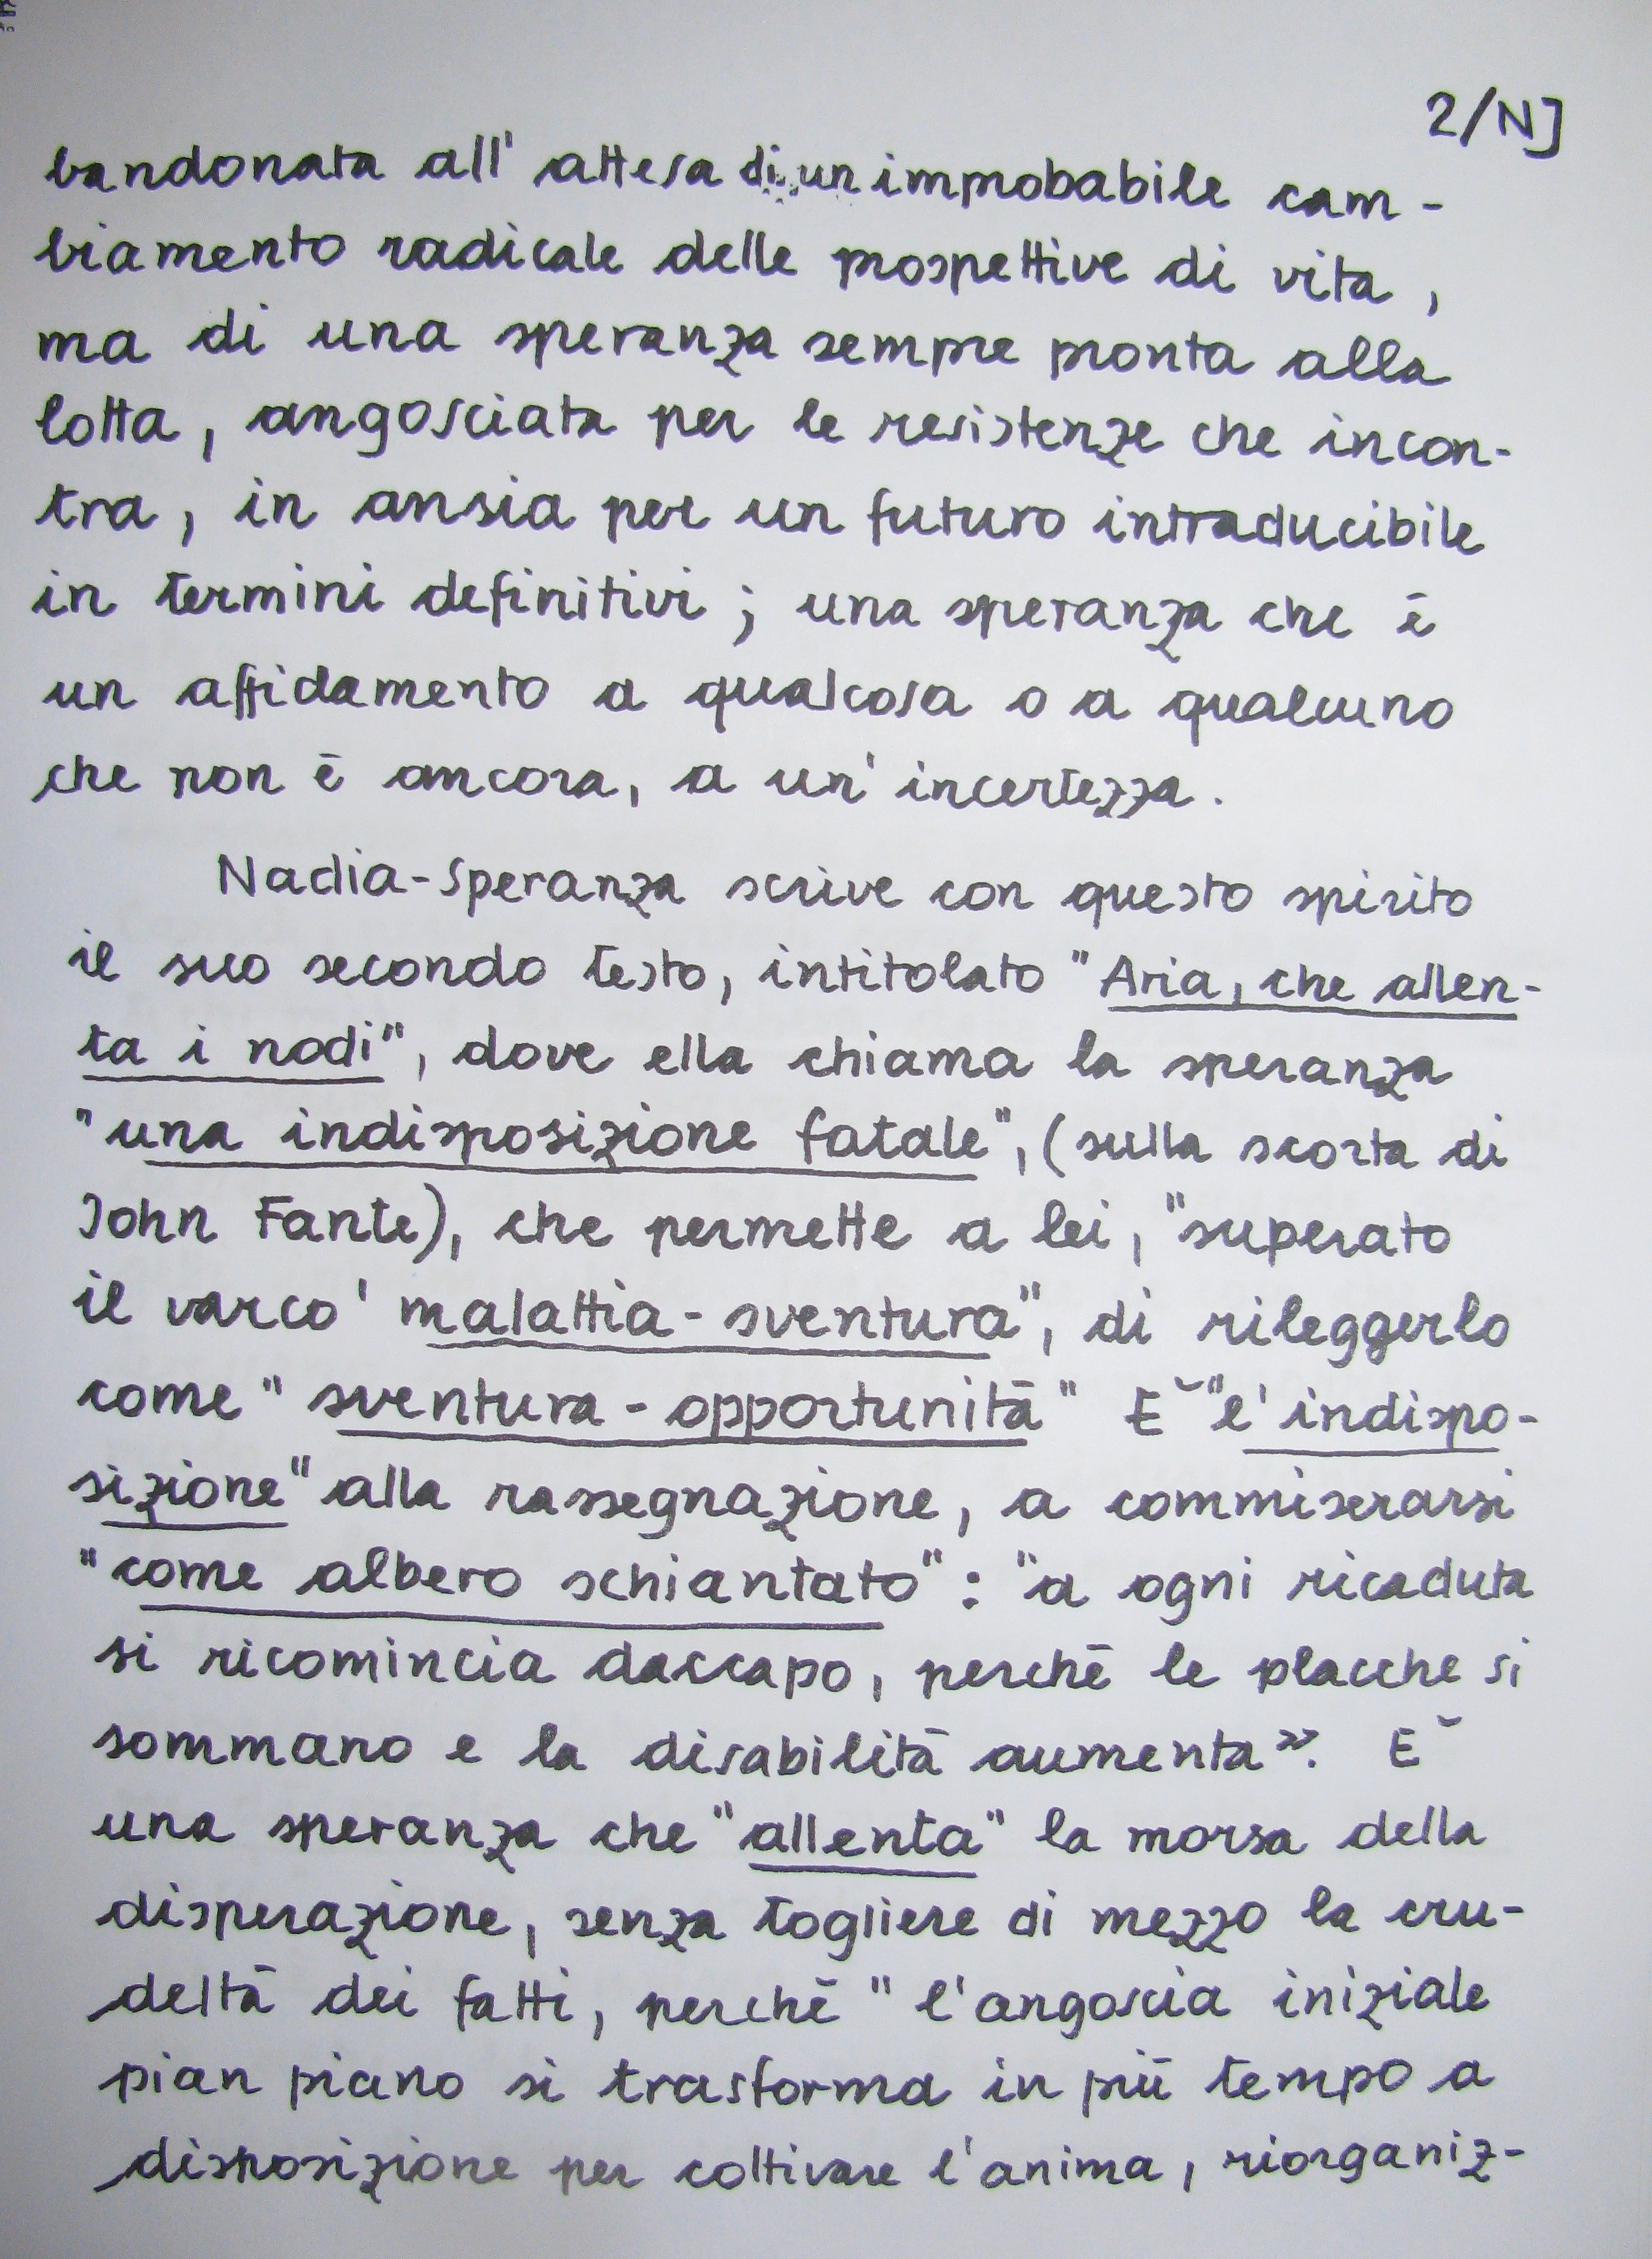 2/N]
bandonata all'attesa di un improbabile cam-
biamento radicale delle prospettive di vita,
ma di una speranza sempre pronta alla
lotta, angosciata per le resistenze che incon-
tra, in ansia per un futuro intraducibile
in termini definitivi; una speranza che è
un affidamento a qualcosa o a qualcuno
che non è ancora, a un'incertezza.
Nadia-Speranza scrive con questo spirito
il suo secondo testo, intitolato "Aria, che allen-
ta i nodi", dove ella chiama la speranza
"una indisposizione fatale", (sulla scorta di
John Fante), che permette a lei, "superato
il varco' malattia-sventura", di rileggerlo
come "sventura-opportunità" E' "l'indispo-
sizione" alla rassegnazione, a commiserarsi
"come albero schiantato": "a ogni ricaduta
si ricomincia daccapo, perché le placche si
sommano e la disabilità aumenta». E'
una speranza che "allenta" la morsa della
disperazione, senza togliere di mezzo la cru-
deltà dei fatti, perché "l'angoscia iniziale
pian piano si trasforma in più tempo a
disposizione per coltivare l'anima, riorganiz-